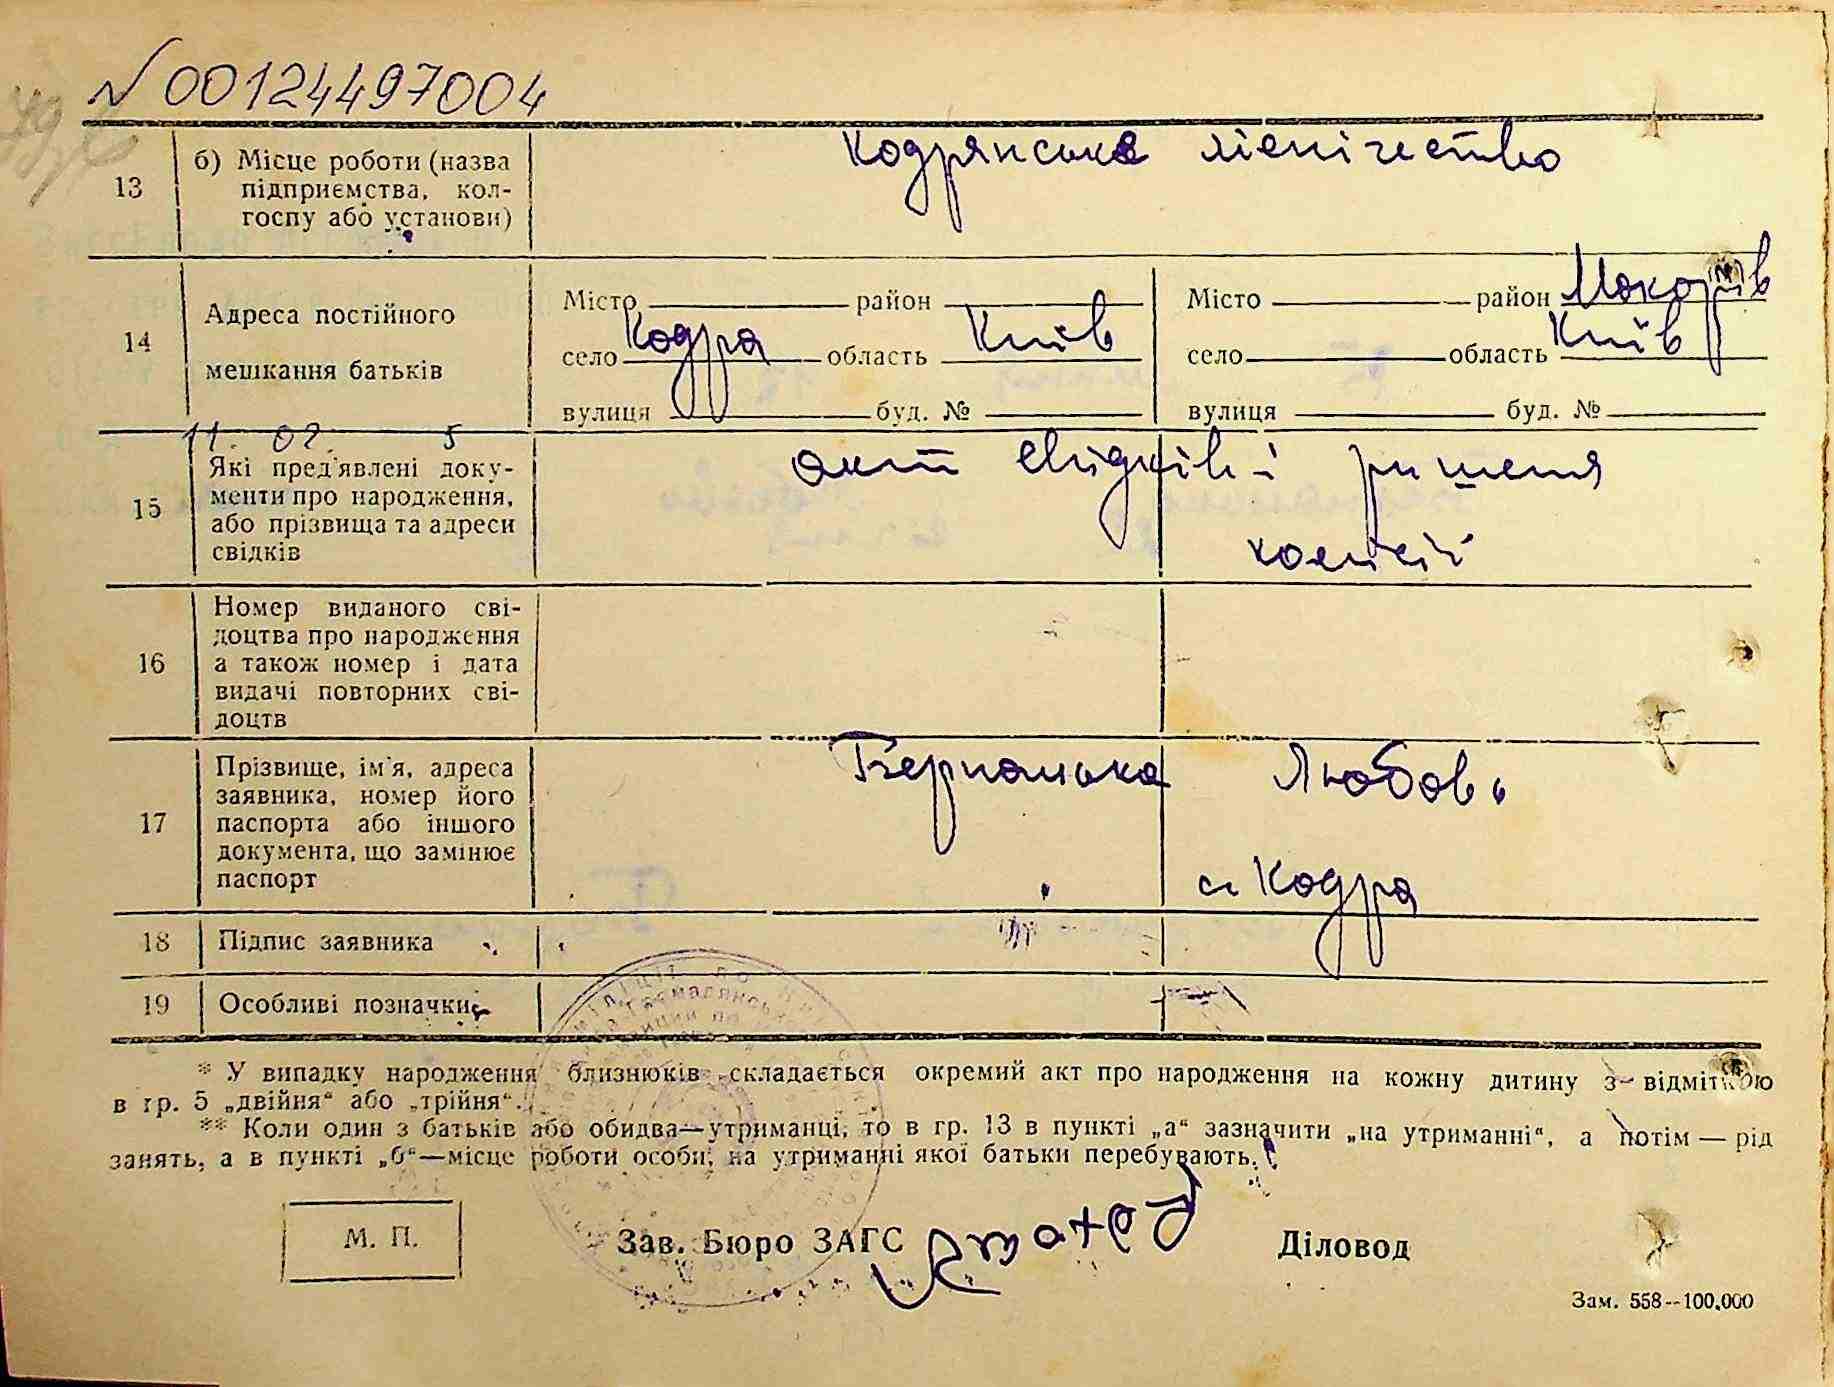 N 00124497004
13
б) Місце роботи (назва
підприємства, кол-
госпу або установи)
Кодрянське лісничество
14
Адреса постійного
мешкання батьків
Місто район
село Кодра область Київ
вулиця буд. №
Місто район Макорів
село область Київ
вулиця буд. №
11. 02. 5
15
Які пред'явлені доку-
менти про народження,
або прізвища та адреси
свідків
акт свідків і ришення
комісії
16
Номер виданого сві-
доцтва про народження
а також номер і дата
видачі повторних сві-
доцтв
17
Прізвище, ім'я, адреса
заявника, номер його
паспорта або іншого
документа, що замінює
паспорт
Любов
с Кодра
18
Підпис заявника
19
Особливі позначки
* У випадку народження близнюків складається окремий акт про народження на кожну дитину з відміткою
в гр. 5 „двійня“ або „трійня“.
** Коли один з батьків або обидва—утриманці, то в гр. 13 в пункті „а“ зазначити „на утриманні“, а потім — рід
занять, а в пункті „б“—місце роботи особи, на утриманні якої батьки перебувають.
М. П.
Зав. Бюро ЗАГС
Діловод
Зам. 558--100.000